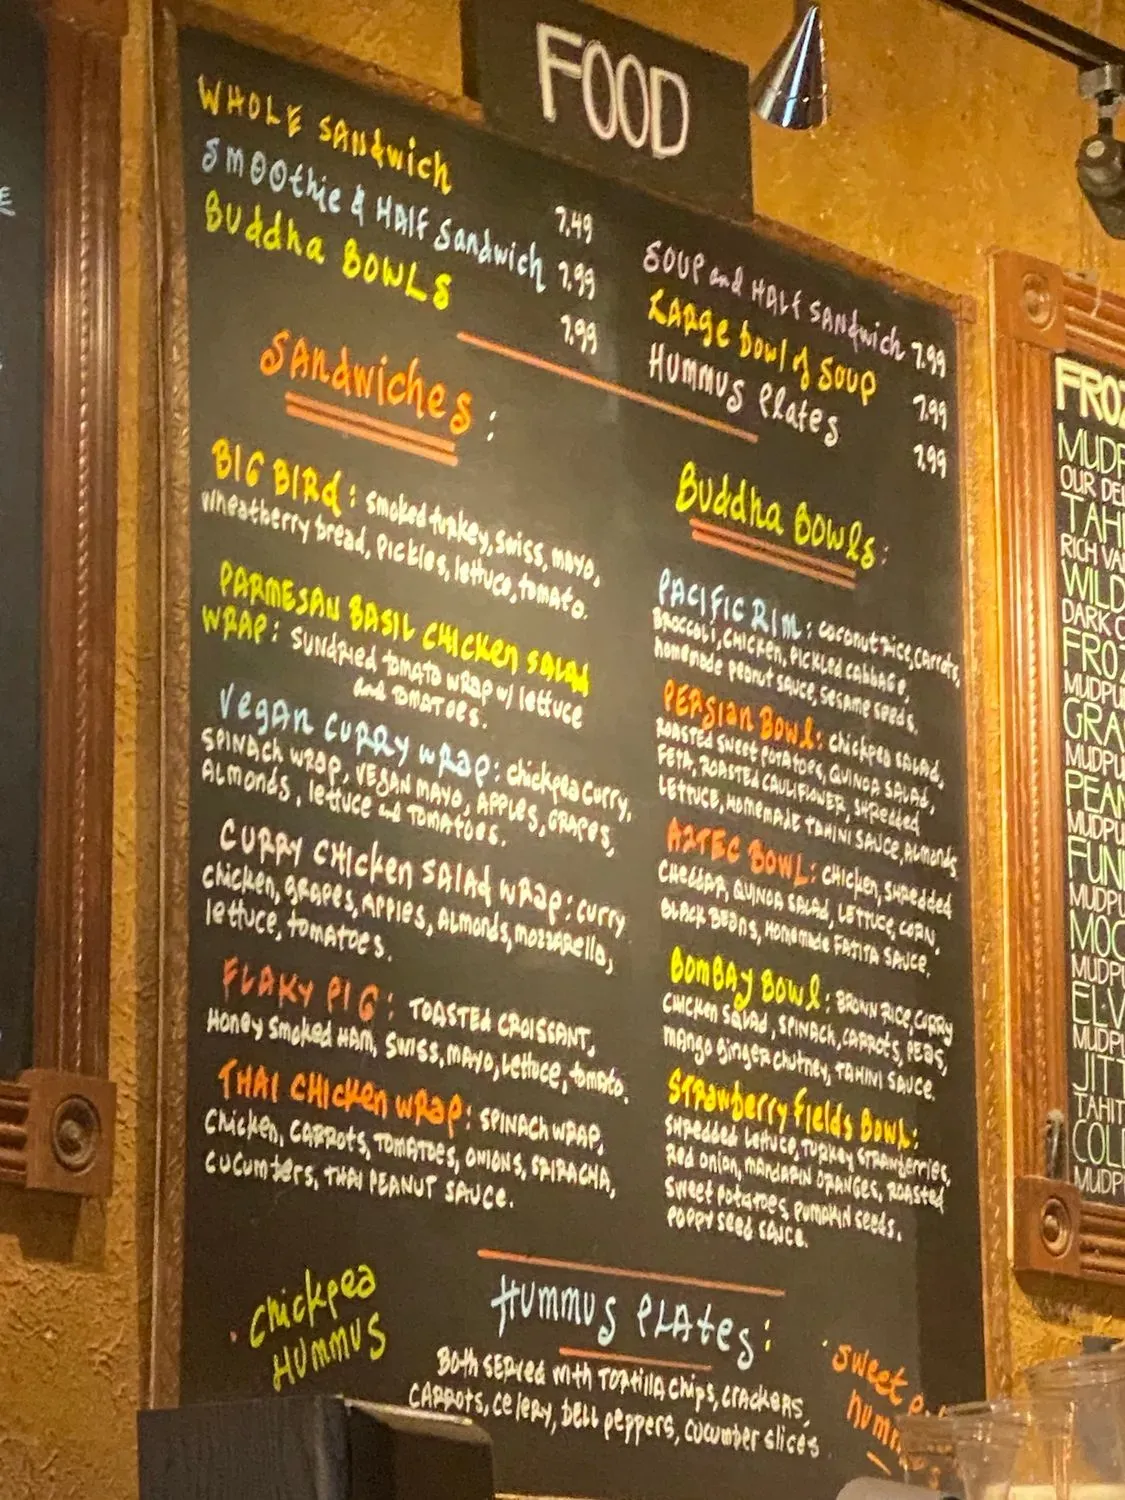 FOOD
WHOLE SANdwich 7.49
Smoothie & HALF Sandwich 7.99
Buddha BOWLS 7.99
SOUP and HALF SANdwich 7.99
LARge bowl of SOUP 7.99
HUMMUS Plates 7.99
SANdwiches:
BIG BIRd: Smoked turkey, swiss, mayo,
Wheatberry bread, pickles, lettuce, tomato.
PARMESAN BASIL CHICKen SALAd
WRAP: SUNdRiEd tomATO WRAP w/ lettuce
and TOMATOES.
Vegan CURRY WRAP: chickpea curry,
SPINACH WRAP, VEGAN MAYO, APPLES, GRAPES,
ALMONdS, lettuce and TOMATOES.
CURRY CHICKen SALAd WRAP: CURRY
chicken, grapes, APPles, ALMONds, mozzARella,
lettuce, tomatoes.
FLAKY PIG: TOASTEd CROISSANT,
Honey Smoked HAM, SWISS, MAYO, Lettuce, tomato.
THAI CHICKen WRAP: SPINACH WRAP,
Chicken, CARROTS, TOMATOES, ONIONS, SRIRACHA,
CUCUMbERS, THAI PEANUT SAUCE.
Buddha BOWLS:
PACIFIC RIM: COCONUT RICE, CARROTS,
BROCCOLI, CHICKEN, PICKLEd CABBAGE,
homemade peanut sauce, sesame seeds.
PERSIAN BOWL: chickpea SALAD,
ROASTED SWEET POTATOES, QUINOA SALAD,
FETA, ROASTED CAULIFLOWER, SHREDDED
LETTUCE, HOMEMADE TAHINI SAUCE, ALMONDS
AZTEC BOWL: CHICKEN, SHREDDED
CHEDDAR, QUINOA SALAD, LETTUCE, CORN,
BLACK BEANS, HOMEMADE FAJITA SAUCE.
BOMBAY BOWL: BROWN RICE, CURRY
CHICKEN SALAD, SPINACH, CARROTS, PEAS,
MANGO GINGER CHUTNEY, TAHINI SAUCE.
STRAWberry Fields BOWL:
SHREDDED LETTUCE, TURKEY, STRAWBERRIES,
Red ONION, MANDARIN ORANGES, ROASTED
SWEET POTATOES, PUMPKIN SEEDS,
POPPY SEED SAUCE.
HUMMUS PLATES:
Both SERVED with TORTILLA Chips, CRACKERS,
CARROTS, Celery, BELL peppers, CUCUMBER slices
Chickpea
HUMMUS
Sweet
FROZ
MUDP
OUR DEL
TAHI
RICH VA
WILD
DARK C
FROZ
MUDPU
GRA
MUDPU
PEAN
MUDPU
FUN
MUDPU
MOC
MUDPU
ELV
MUDPU
JIT
TAHIT
COL
MUDP